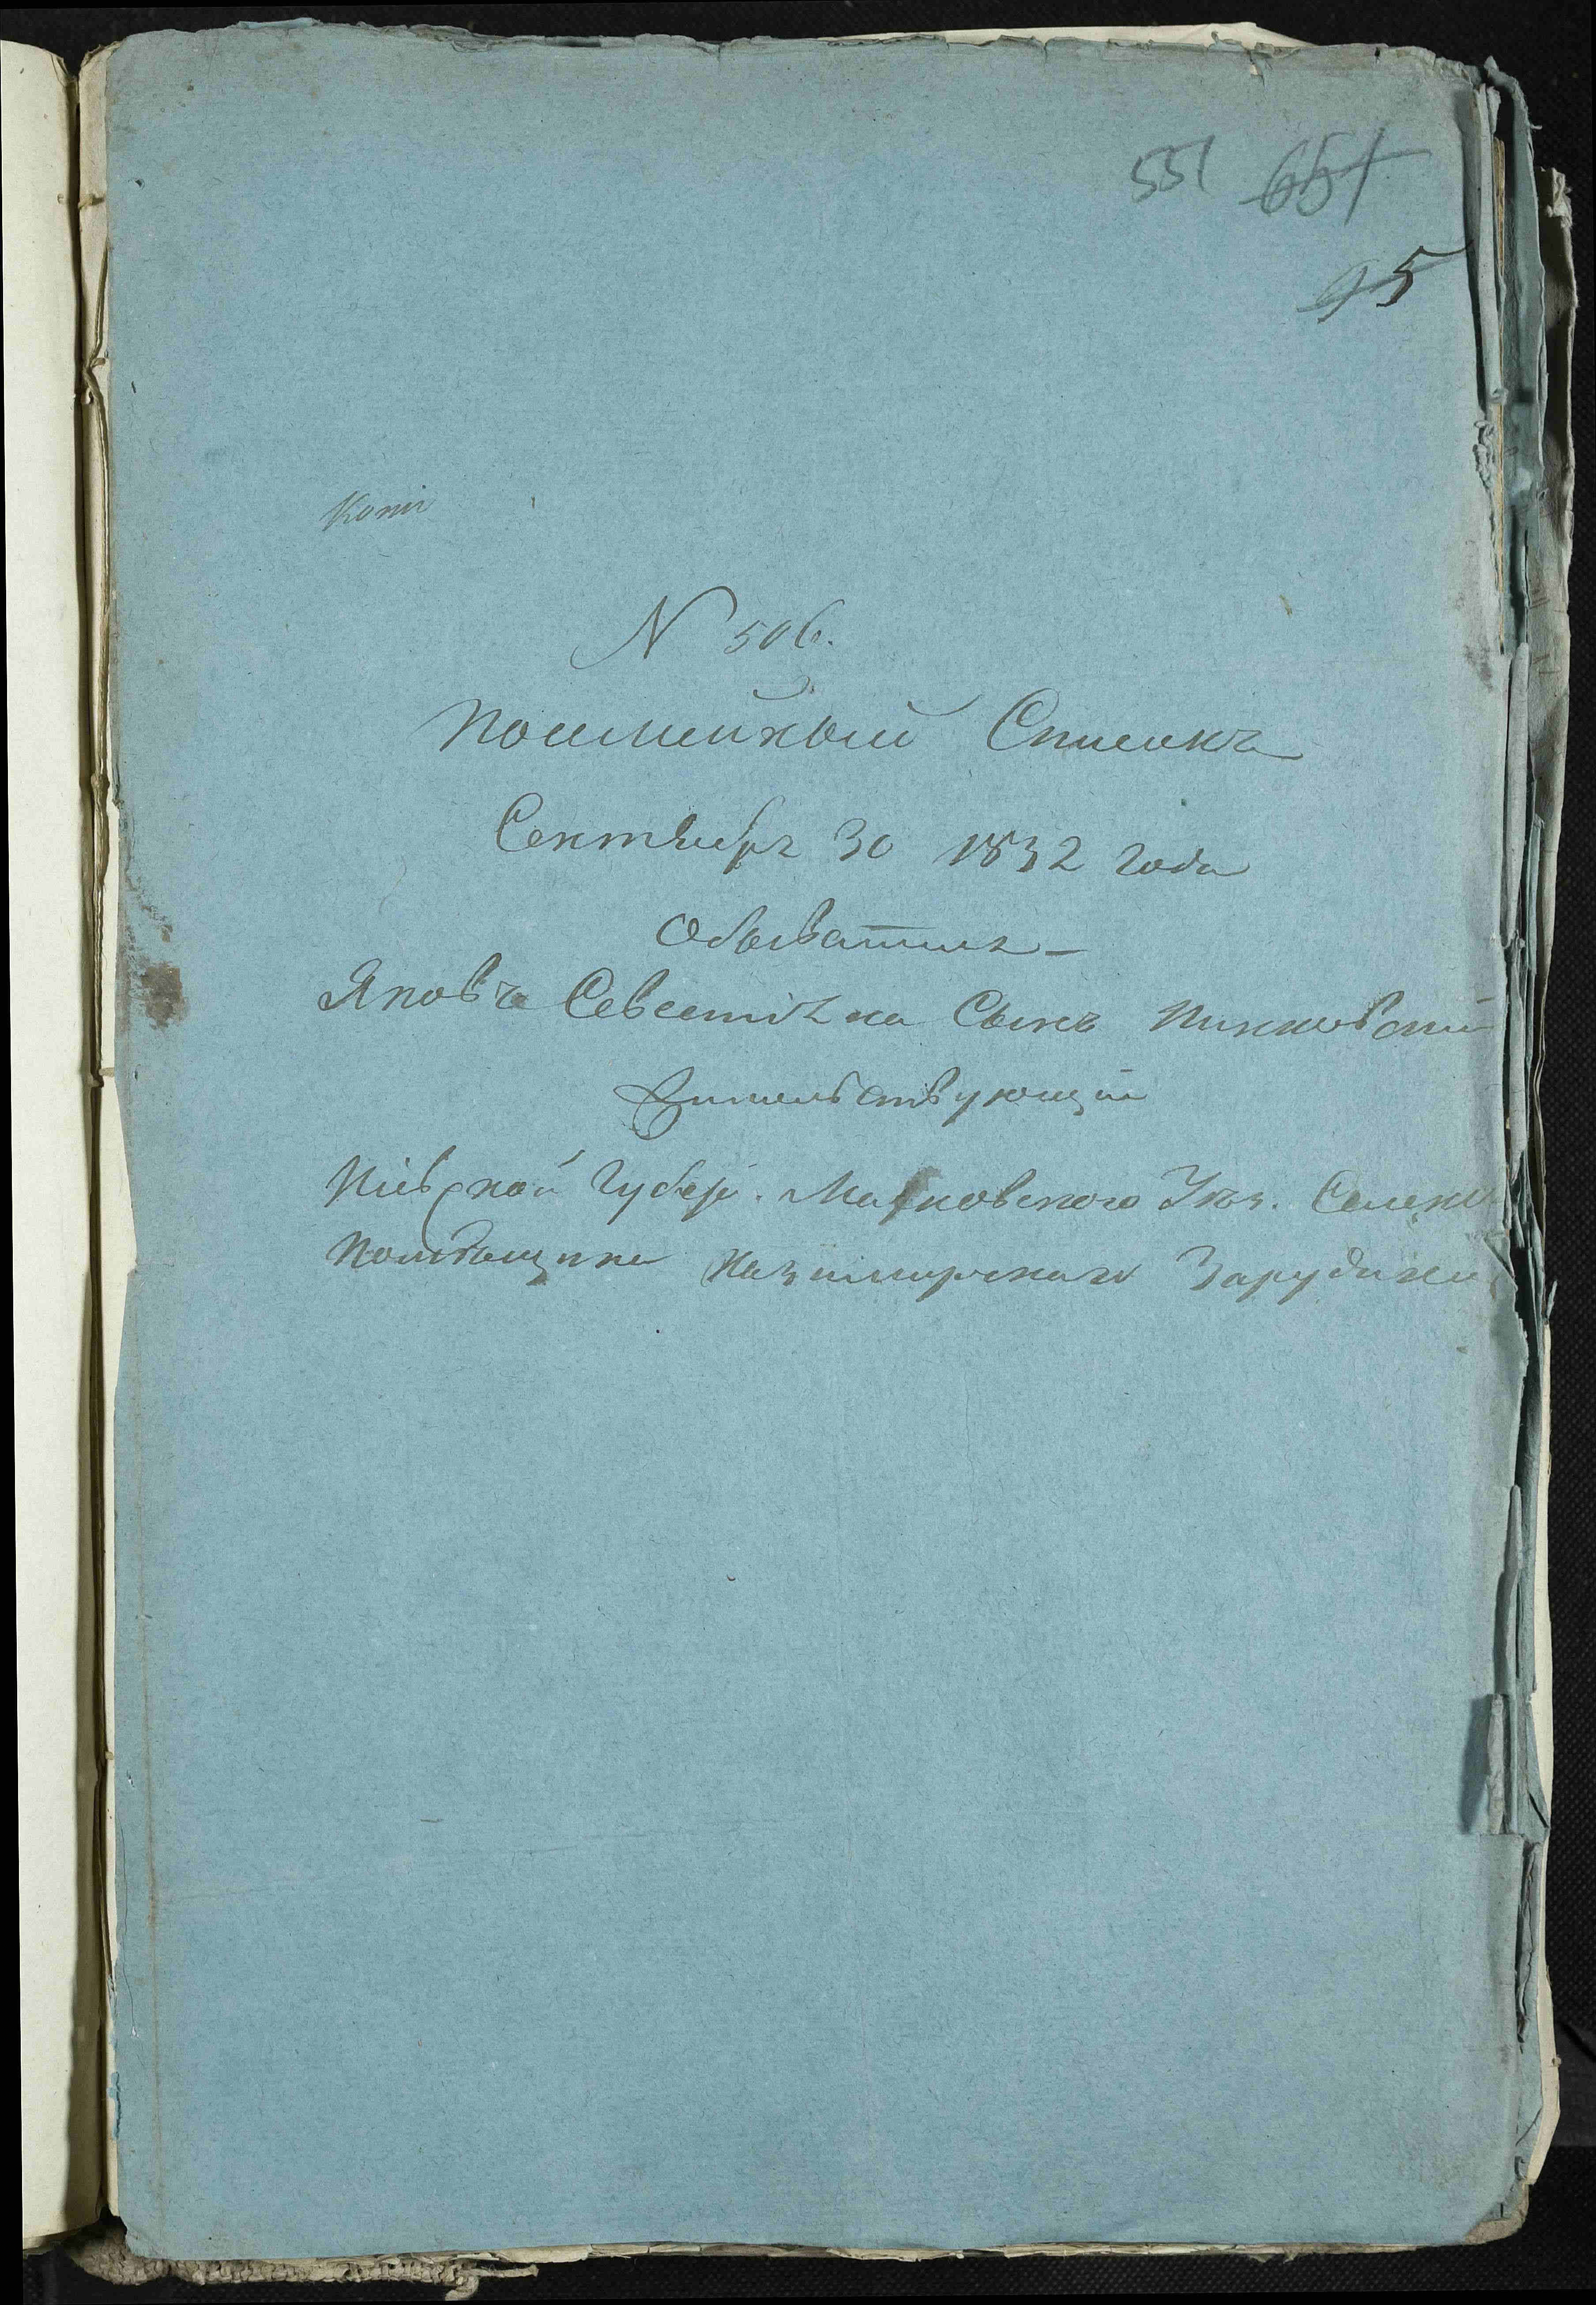 551 651
95
Копі
N 506.
Посемейный Списокъ
Сентябръ 30 1832 года
Обыватель
Яковъ Севестіяна Сынъ
Жительствующій
Кіевской Губер. Махновского Уѣз. Селенія
Помѣщика Казимирского Зарудинец